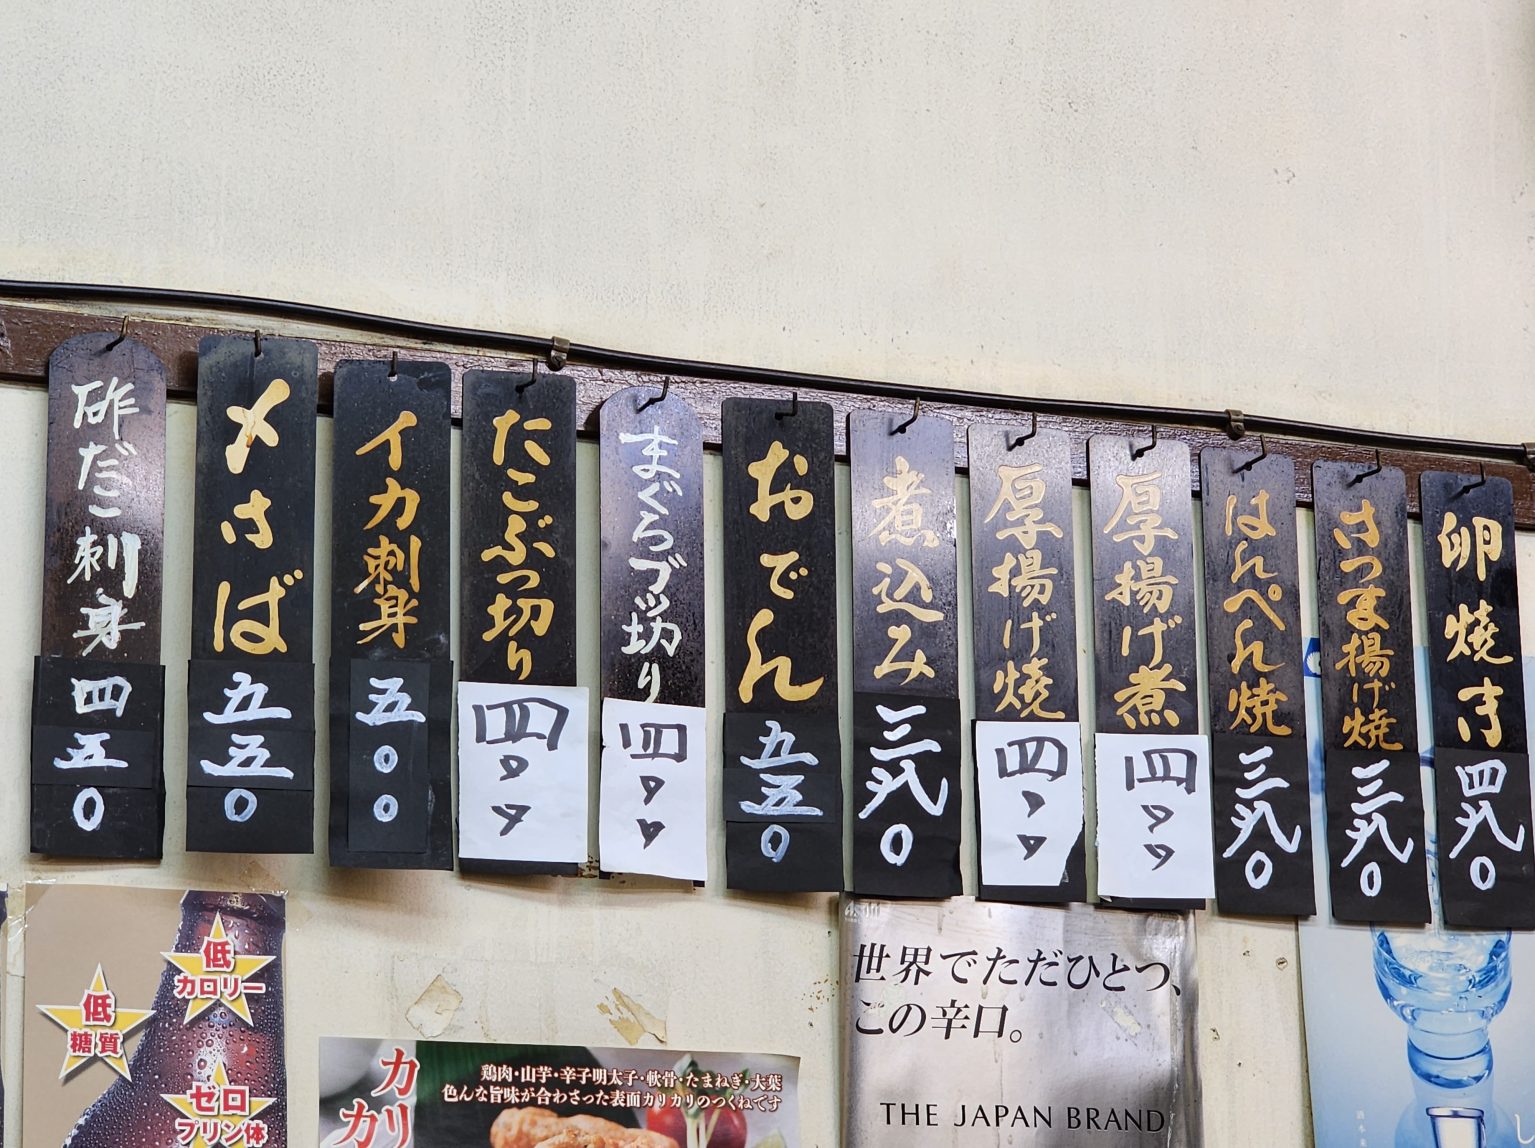 卵焼き
四八0
さつま揚げ焼
三八0
はんぺん焼
三八0
厚揚げ煮
四00
厚揚げ焼
四00
煮込み
三八0
おでん
五五0
まぐろブツ切り
四00
たこぶつ切り
四00
イカ刺身
五00
〆さば
五五0
酢だこ刺身
四五0
低
カロリー
低
糖質
ゼロ
プリン体
カリ
カリ
鶏肉・山芋・辛子明太子・軟骨・たまねぎ・大葉
色んな旨味が合わさった表面カリカリのつくねです
Asahi
世界でただひとつ、
この辛口。
THE JAPAN BRAND